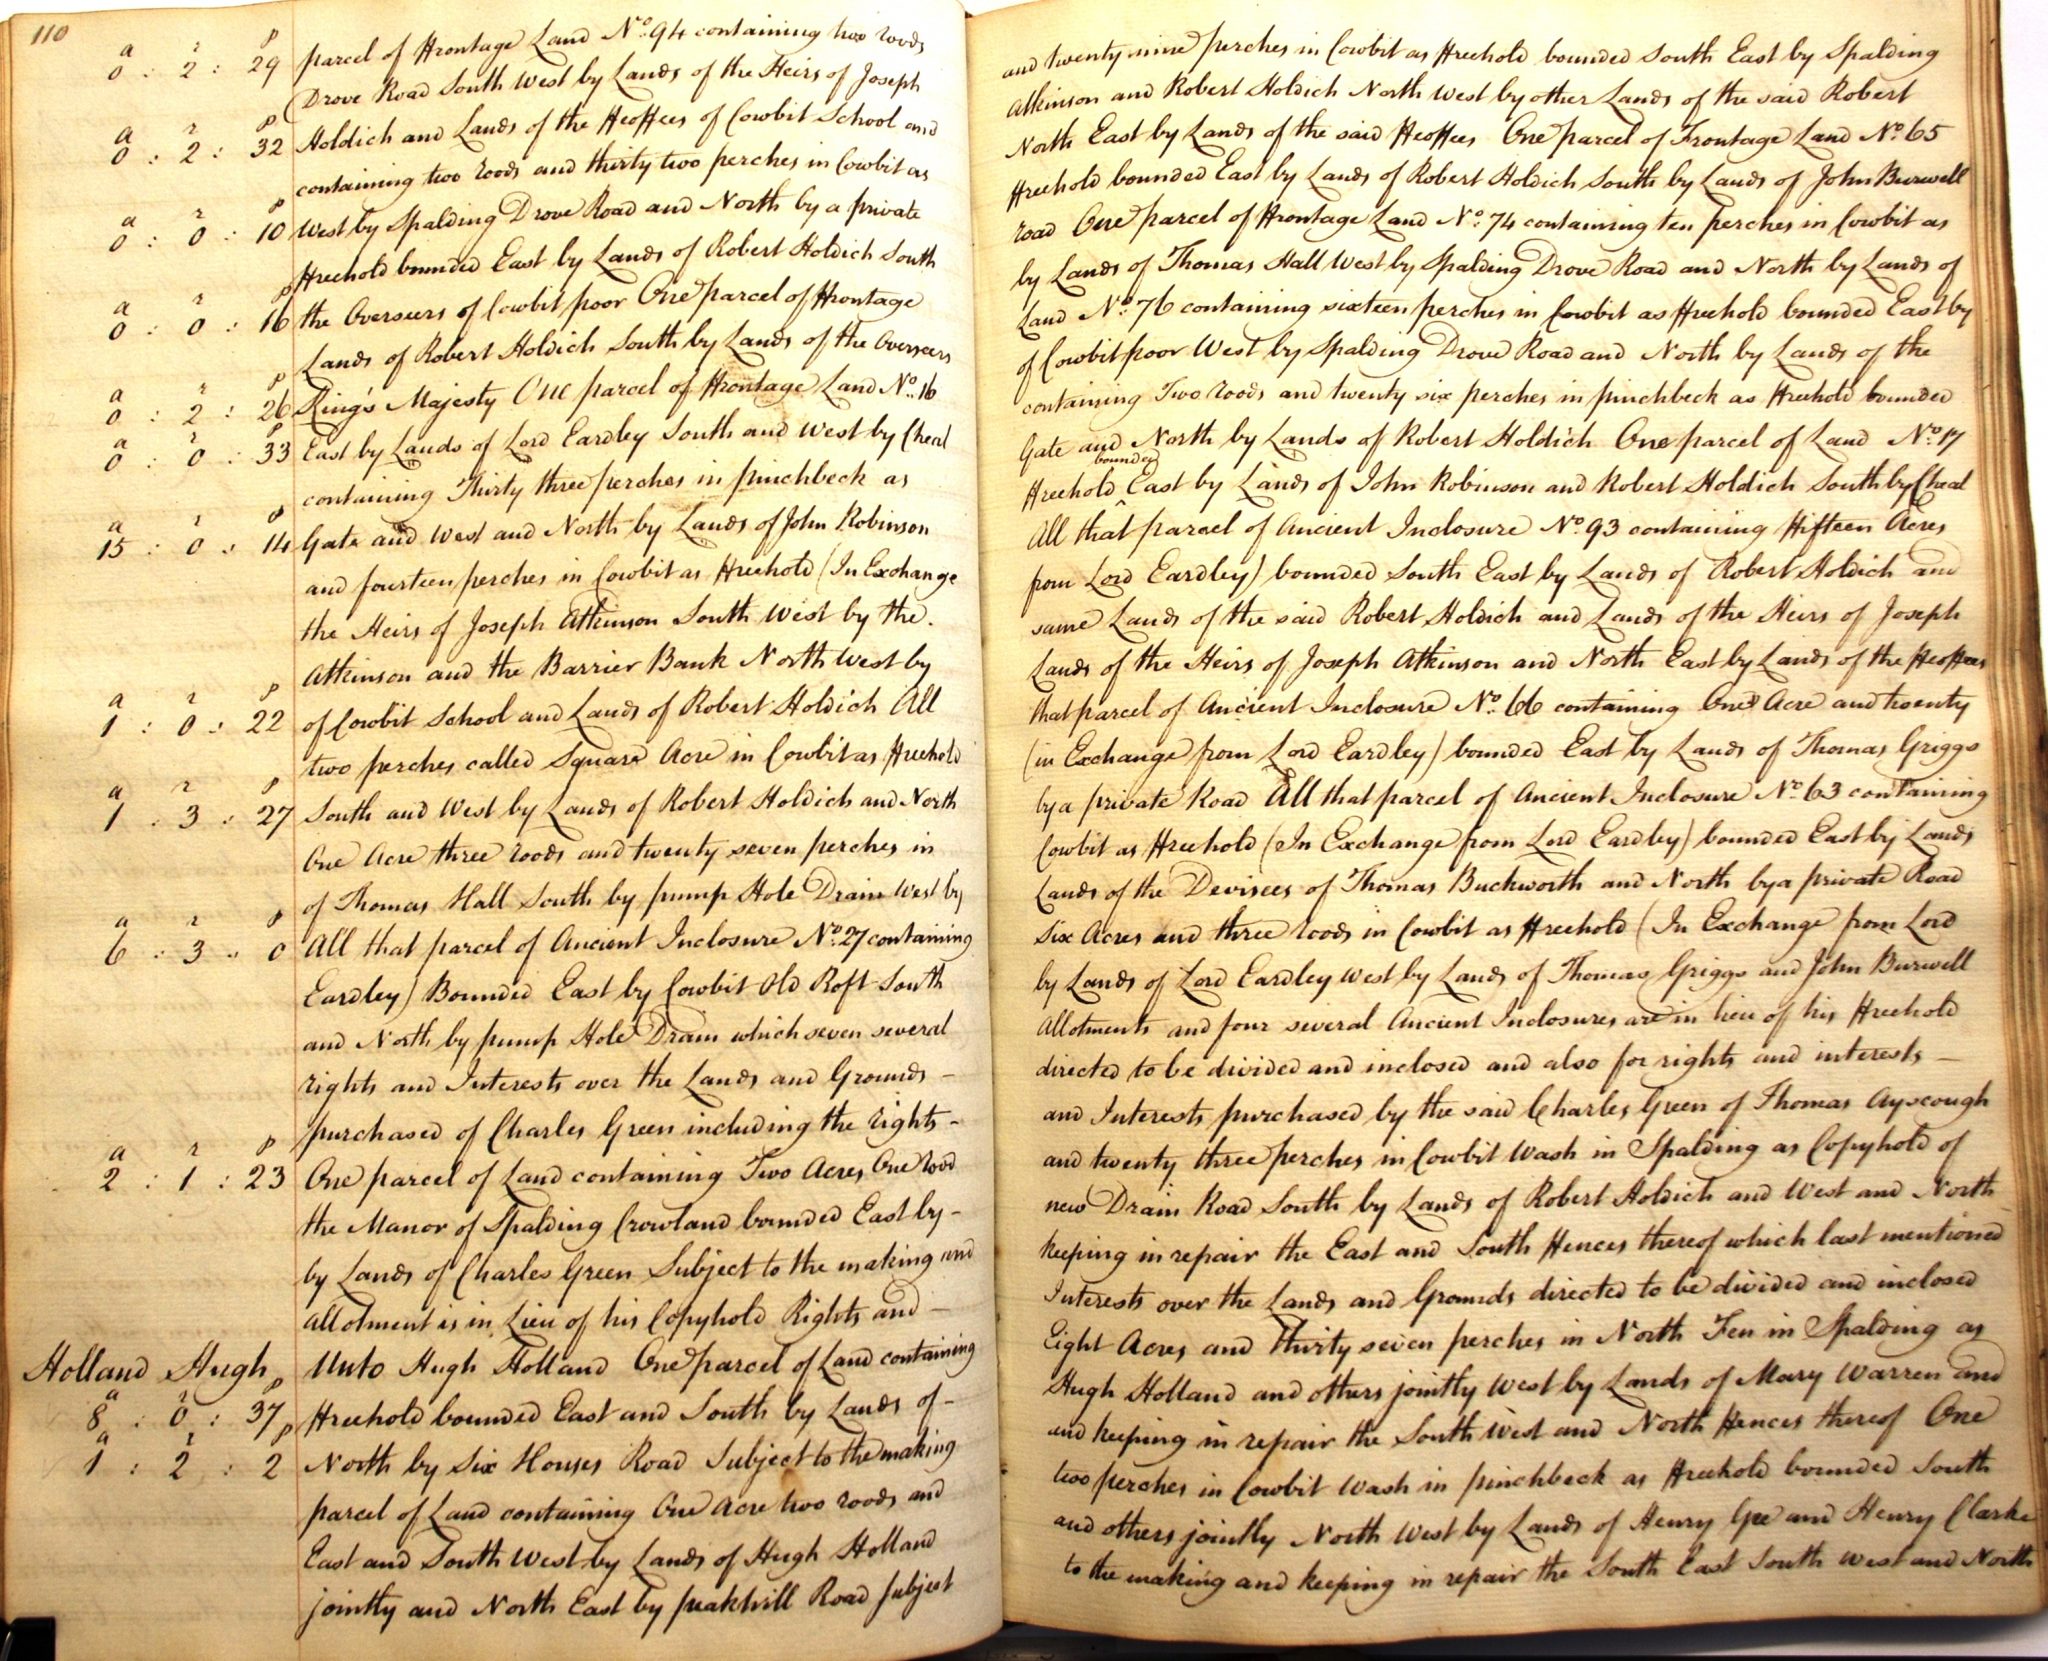 110
a r p
0 : 2 : 29 parcel of Frontage Land No. 94 containing two roods and twenty nine perches in Cowbit as Freehold bounded South East by Spalding
Drove Road South West by Lands of the Heirs of Joseph Atkinson and Robert Holdich North West by other Lands of the said Robert
a r p
0 : 2 : 32 Holdich and Lands of the Feoffees of Cowbit School and North East by Lands of the said Feoffees One parcel of Frontage Land No. 65
containing two roods and thirty two perches in Cowbit as Freehold bounded East by Lands of Robert Holdich South by Lands of John Burwell
a r p
0 : 0 : 10 West by Spalding Drove Road and North by a private road One parcel of Frontage Land No. 74 containing ten perches in Cowbit as
Freehold bounded East by Lands of Robert Holdich South by Lands of Thomas Hall West by Spalding Drove Road and North by Lands of
a r p
0 : 0 : 16 the Overseers of Cowbit poor One parcel of Frontage Land No. 76 containing sixteen perches in Cowbit as Freehold bounded East by
Lands of Robert Holdich South by Lands of the Overseers of Cowbit poor West by Spalding Drove Road and North by Lands of the
a r p
0 : 2 : 26 King's Majesty One parcel of Frontage Land No. 16 containing Two roods and twenty six perches in pinchbeck as Freehold bounded
a r p
0 : 0 : 33 East by Lands of Lord Eardley South and West by Cheal Gate and North by Lands of Robert Holdich One parcel of Land No. 17
containing Thirty three perches in pinchbeck as Freehold bounded East by Lands of John Robinson and Robert Holdich South by Cheal
a r p
15 : 0 : 14 Gate and West and North by Lands of John Robinson All that parcel of Ancient Inclosure No. 93 containing Fifteen Acres
and fourteen perches in Cowbit as Freehold (In Exchange from Lord Eardley) bounded South East by Lands of Robert Holdich and
the Heirs of Joseph Atkinson South West by the same Lands of the said Robert Holdich and Lands of the Heirs of Joseph
Atkinson and the Barrier Bank North West by Lands of the Heirs of Joseph Atkinson and North East by Lands of the Feoffees
a r p
1 : 0 : 22 of Cowbit School and Lands of Robert Holdich All that parcel of Ancient Inclosure No. 66 containing One Acre and twenty
two perches called Square Acre in Cowbit as Freehold (in Exchange from Lord Eardley) bounded East by Lands of Thomas Griggs
a r p
1 : 3 : 27 South and West by Lands of Robert Holdich and North by a private Road All that parcel of Ancient Inclosure No. 63 containing
One Acre three roods and twenty seven perches in Cowbit as Freehold (In Exchange from Lord Eardley) bounded East by Lands
of Thomas Hall South by pump Hole Drain West by Lands of the Devisees of Thomas Buckworth and North by a private Road
a r p
6 : 3 : 0 All that parcel of Ancient Inclosure No. 27 containing Six Acres and three roods in Cowbit as Freehold (In Exchange from Lord
Eardley) Bounded East by Cowbit Old Roft South by Lands of Lord Eardley West by Lands of Thomas Griggs and John Burwell
and North by pump Hole Drain which seven several Allotments and four several Ancient Inclosures are in lieu of his Freehold
rights and Interests over the Lands and Grounds directed to be divided and inclosed and also for rights and interests
purchased of Charles Green including the rights and Interests purchased by the said Charles Green of Thomas Ayscough
a r p
2 : 1 : 23 One parcel of Land containing Two Acres One rood and twenty three perches in Cowbit Wash in Spalding as Copyhold of
the Manor of Spalding Crowland bounded East by new Drain Road South by Lands of Robert Holdich and West and North
by Lands of Charles Green Subject to the making and keeping in repair the East and South Fences thereof which last mentioned
allotment is in Lieu of his Copyhold Rights and Interests over the Lands and Grounds directed to be divided and inclosed
Holland Hugh Unto Hugh Holland One parcel of Land containing Eight Acres and thirty seven perches in North Fen in Spalding as
a r p
8 : 0 : 37 Freehold bounded East and South by Lands of Hugh Holland and others jointly West by Lands of Mary Warren and
a r p
1 : 2 : 2 North by Six Houses Road Subject to the making and keeping in repair the South West and North Fences thereof One
parcel of Land containing One Acre two roods and two perches in Cowbit Wash in pinchbeck as Freehold bounded South
East and South West by Lands of Hugh Holland and others jointly North West by Lands of Henry Gee and Henry Clarke
jointly and North East by peakhill Road subject to the making and keeping in repair the South East South West and North